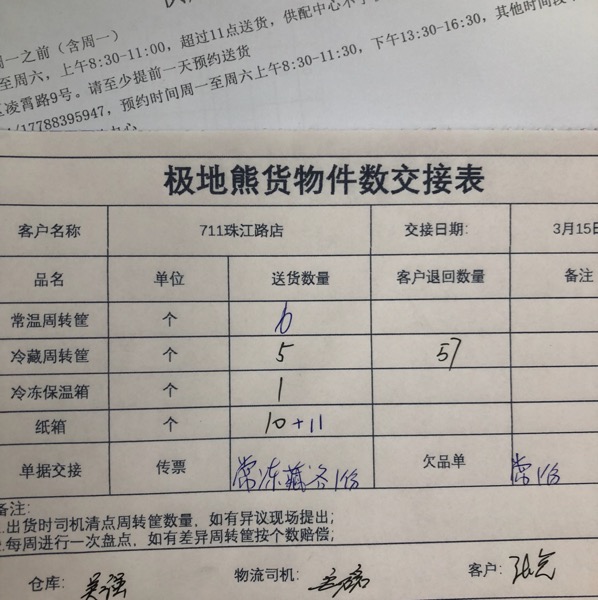 周一之前（含周一）
至周六，上午8:30-11:00，超过11点送货，供配中心不予
区凌霄路9号。请至少提前一天预约送货
17788395947，预约时间周一至周六上午8:30-11:30，下午13:30-16:30，其他时间段
极地熊货物件数交接表
客户名称 711珠江路店 交接日期: 3月15日
品名 单位 送货数量 客户退回数量 备注
常温周转筐 个 6
冷藏周转筐 个 5 57
冷冻保温箱 个 1
纸箱 个 10+11
单据交接 传票 常冻藏各1份 欠品单 常1份
备注:
.出货时司机清点周转筐数量，如有异议现场提出;
.每周进行一次盘点，如有差异周转筐按个数赔偿;
仓库: 吴强 物流司机: 客户: